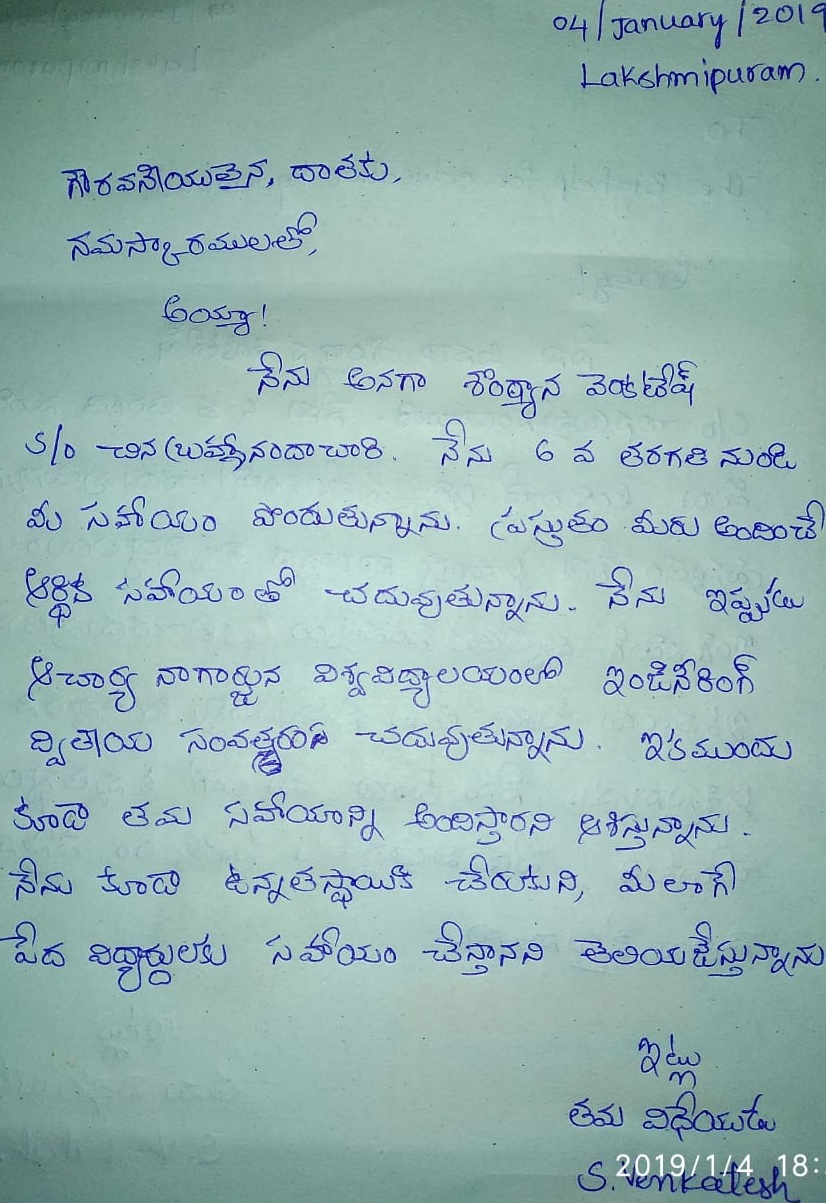 04/January/2019
Lakshmipuram.
గౌరవనీయులైన, దాతకు,
నమస్కారములతో,
అయ్యా!
నేను అనగా వెంకటేష్
S/o చిన బ్రహ్మానందాచారి. నేను 6 వ తరగతి నుండి
మీ సహాయం పొందుతున్నాను. ప్రస్తుతం మీరు అందించే
ఆర్థిక సహాయంతో చదువుతున్నాను. నేను ఇప్పుడు
ఆచార్య నాగార్జున విశ్వవిద్యాలయంలో ఇంజినీరింగ్
ద్వితీయ సంవత్సరం చదువుతున్నాను. ఇకముందు
కూడా తమ సహాయాన్ని అందిస్తారని ఆశిస్తున్నాను.
నేను కూడా ఉన్నతస్థాయికి చేరుకుని, మీలాగే
పేద విద్యార్థులకు సహాయం చేస్తానని తెలియజేస్తున్నాను
ఇట్లు
తమ విధేయుడు
S. Venkatesh
2019/1/4 18: